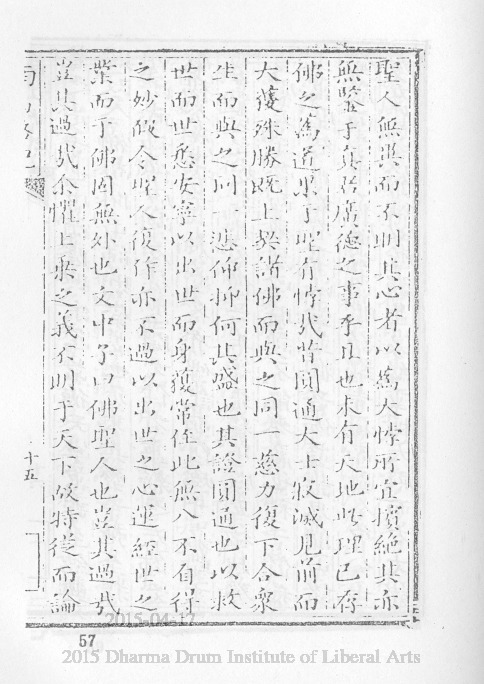 聖人無異而不明其心者以為大悖所宜擯絕其亦
無鑒于真君廣德之事乎且也未有天地此理已存
佛之為道果于聖有悖哉昔圓通大士寂滅見前而
大獲殊勝既上與諸佛而與之同一慈力復下合眾
生而與之同一悲仰抑何其盛也其證圓通也以救
世而世悉安寧以出世而身獲常住此無入不自得
之妙假令聖人復作亦不過以出世之心運經世之
業而于佛固無外也文中子曰佛聖人也豈其過哉
豈其過哉余懼上乘之義不明于天下故特從而論
十五
57
2015-04-17
2015 Dharma Drum Institute of Liberal Arts